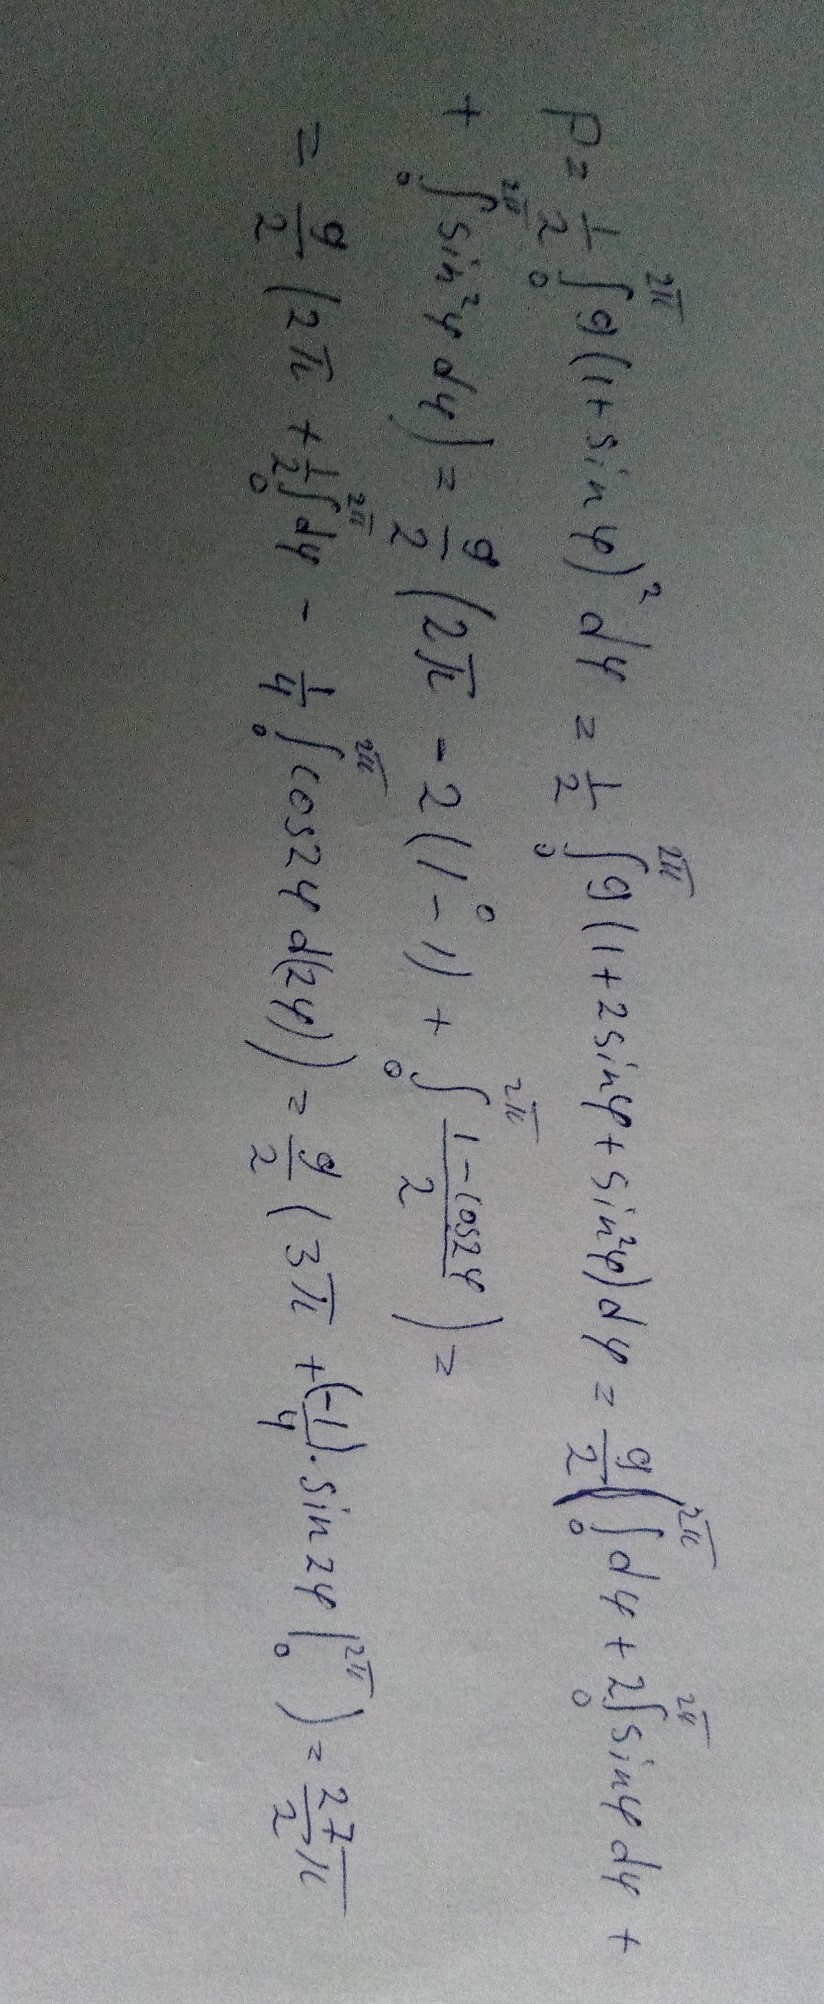 P = 1/2 ∫₀^{2π} 9(1+sin φ)² dφ = 1/2 ∫₀^{2π} 9(1+2sinφ+sin²φ)dφ = 9/2 (∫₀^{2π} dφ + 2∫₀^{2π} sinφ dφ +
+ ∫₀^{2π} sin²φ dφ) = 9/2 (2π - 2(1-1)⁰ + ∫₀^{2π} (1-cos2φ)/2 ) =
= 9/2 (2π + 1/2 ∫₀^{2π} dφ - 1/4 ∫₀^{2π} cos2φ d(2φ)) = 9/2 (3π + (-1/4)·sin2φ |₀^{2π} ) = 27/2 π